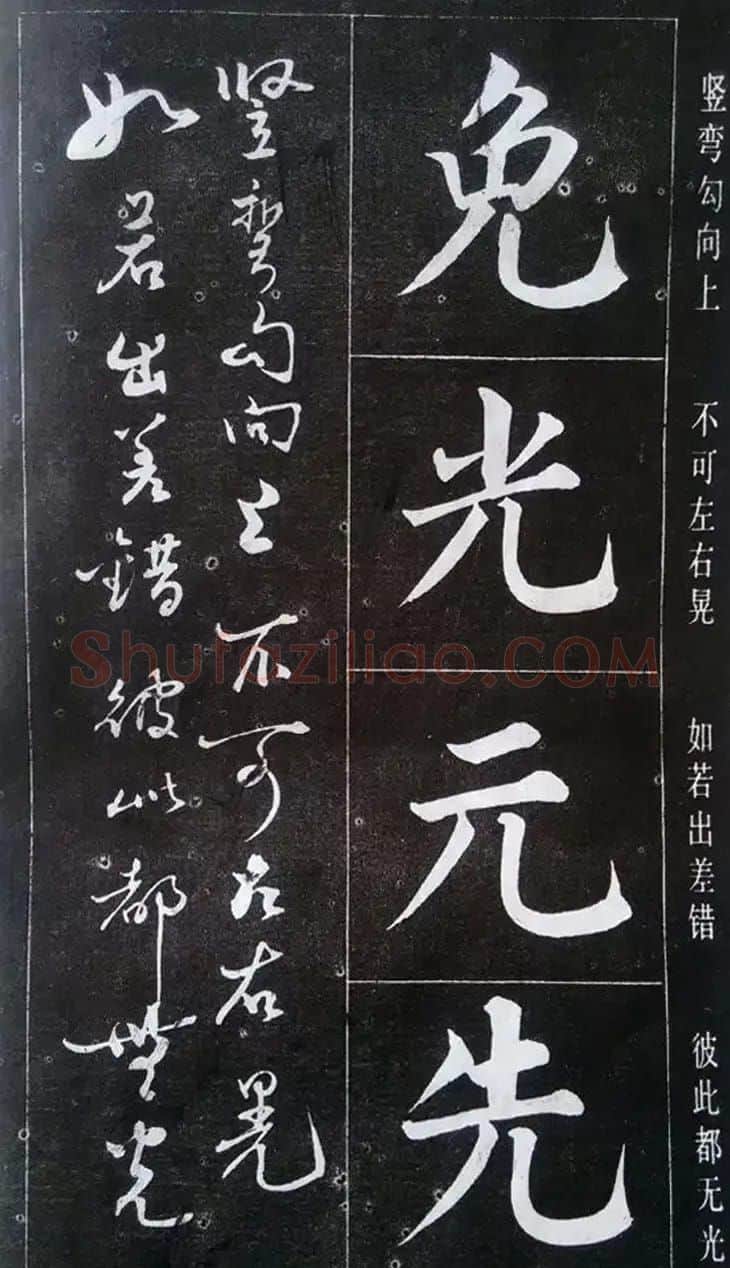 竖弯勾向上
不可左右晃
如若出差错
彼此都无光
免
光
元
先
竖弯勾向上不可左右晃
如若出差錯彼此都無光
Shufaziliao.COM